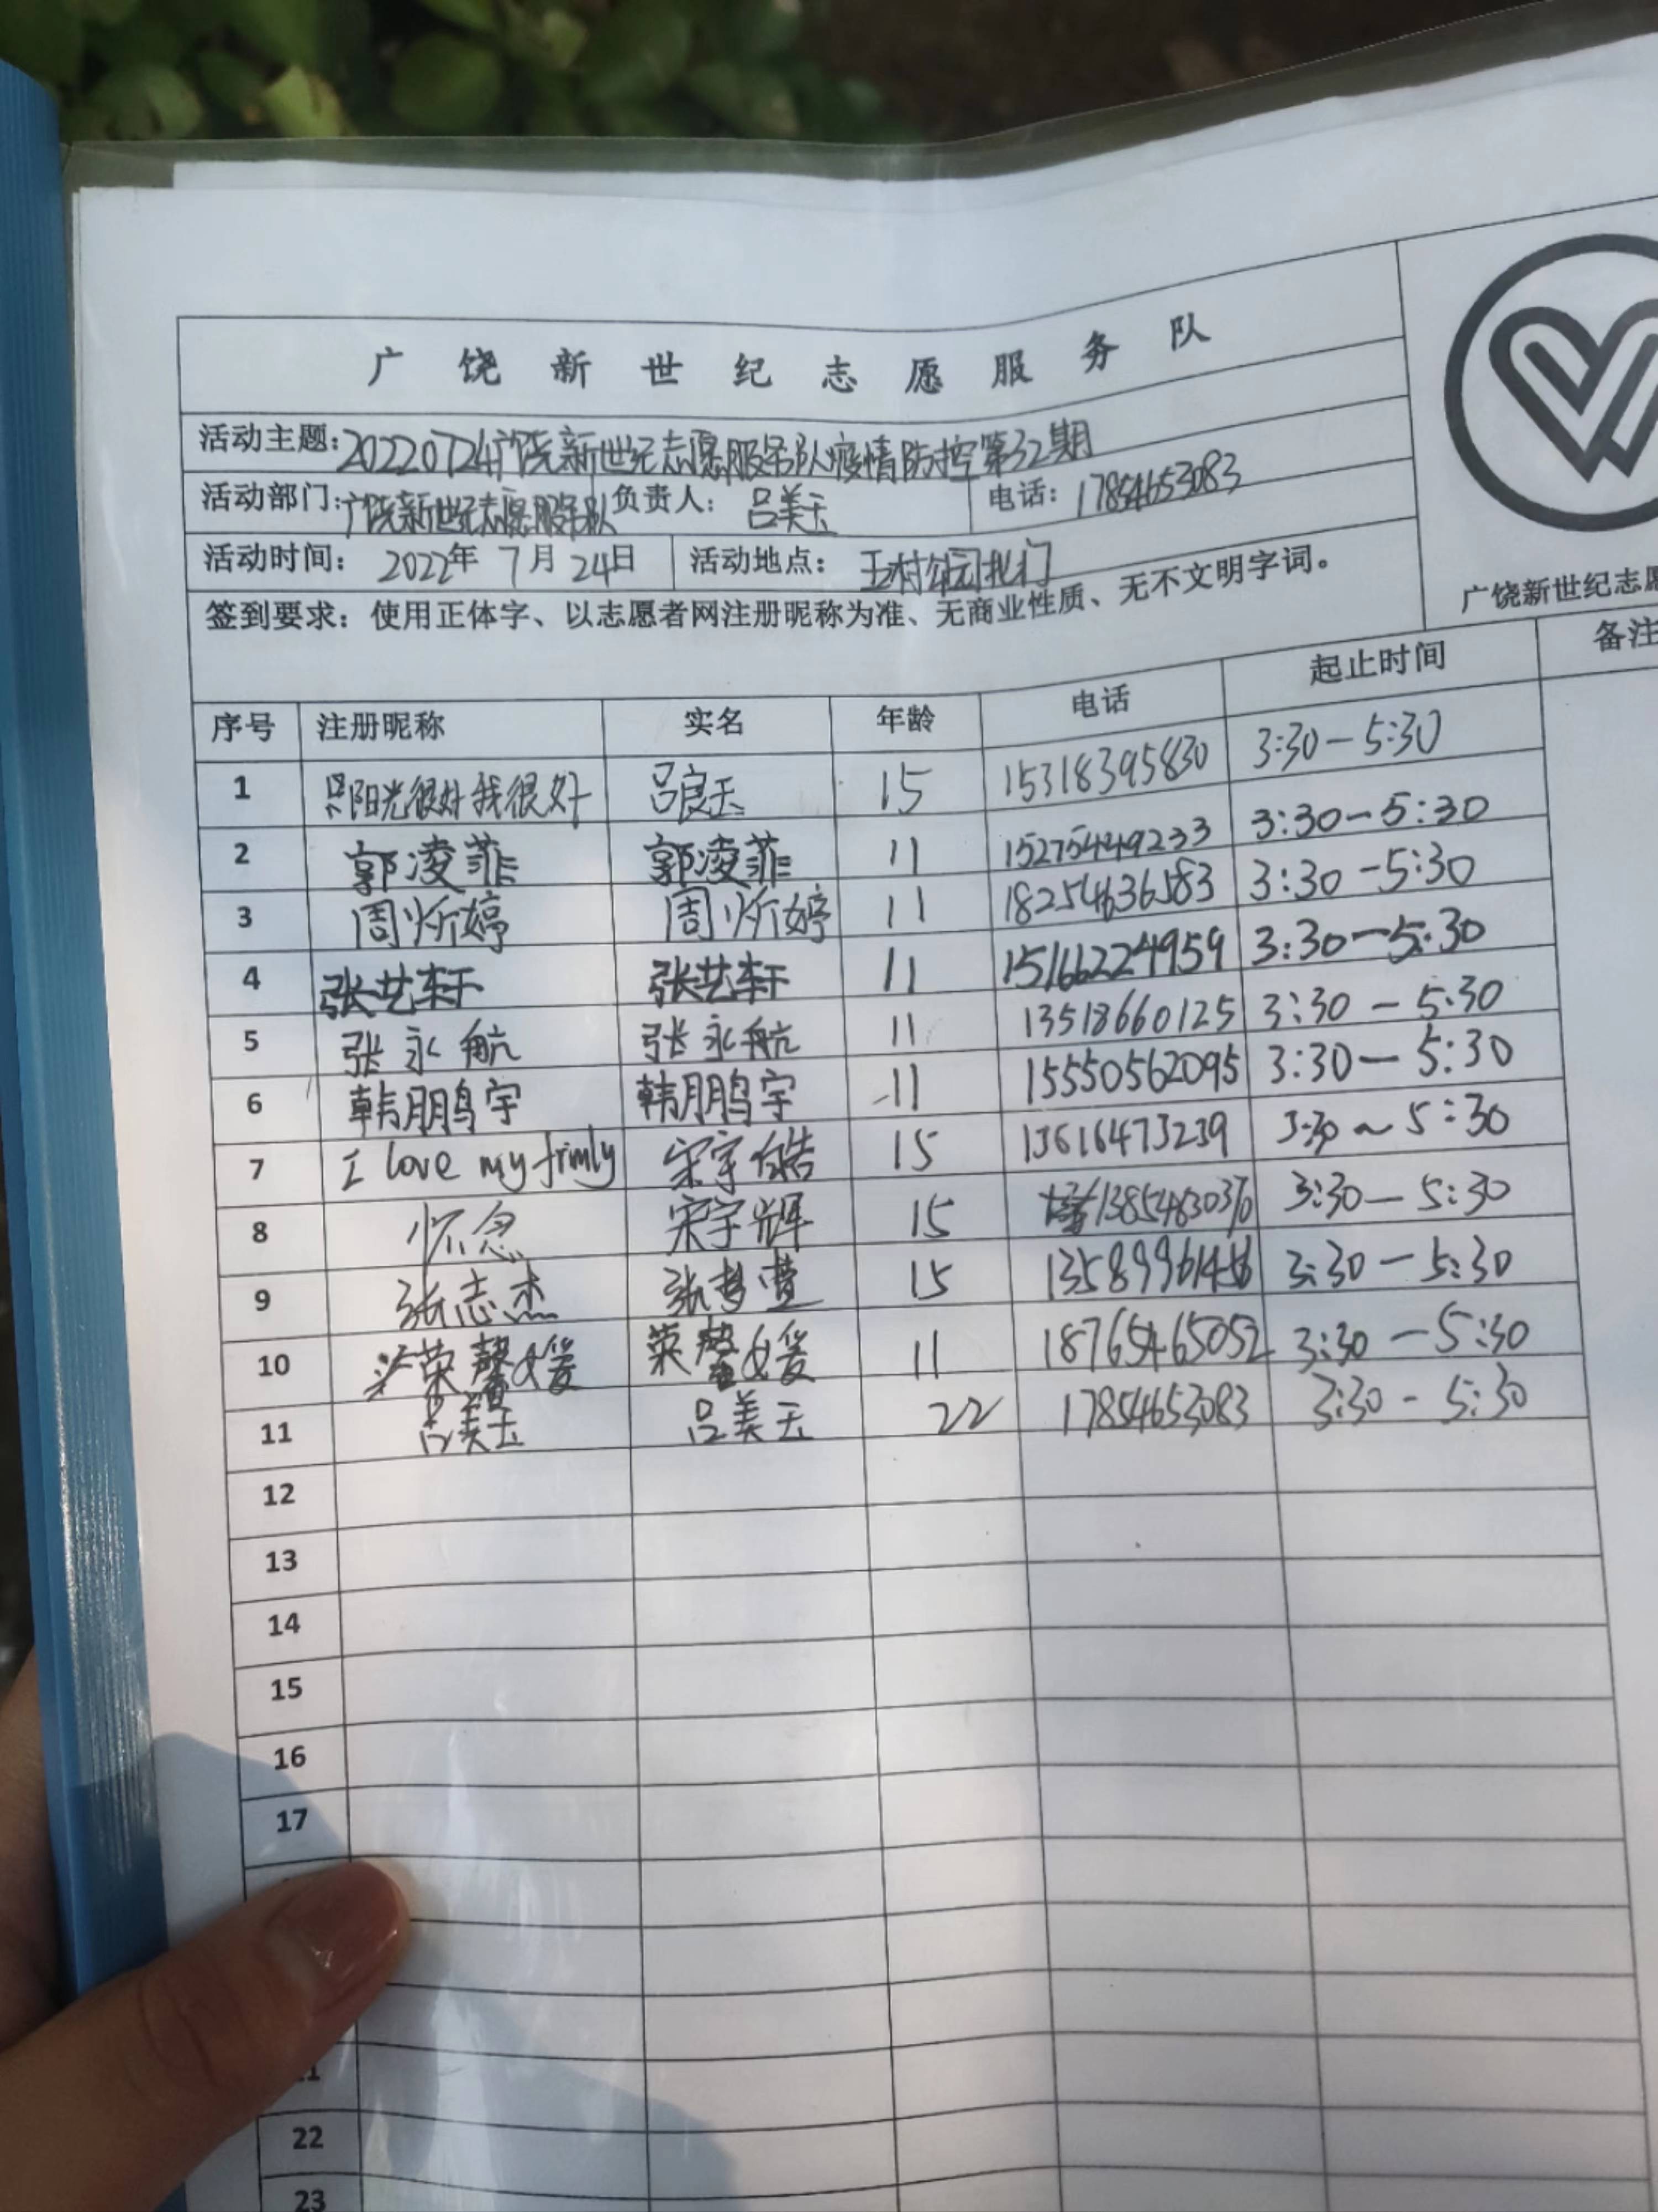 广饶新世纪志愿服务队
活动主题:20220724广饶新世纪志愿服务队疫情防控第32期
活动部门:广饶新世纪志愿服务队 负责人: 吕美玉 电话: 17854653083
活动时间: 2022年 7月 24日 活动地点: 王村公园北门
签到要求:使用正体字、以志愿者网注册昵称为准、无商业性质、无不文明字词。
广饶新世纪志愿
序号 注册昵称 实名 年龄 电话 起止时间 备注
1 阳光很好我很好 吕良玉 15 15318395830 3:30-5:30
2 郭凌菲 郭凌菲 11 15275449233 3:30-5:30
3 周炘婷 周炘婷 11 18254636583 3:30-5:30
4 张艺轩 张艺轩 11 15166224959 3:30-5:30
5 张永航 张永航 11 13518660125 3:30-5:30
6 韩鹏宇 韩鹏宇 11 15550562095 3:30-5:30
7 I love my frimly 宋宇皓 15 13616473239 3:30~5:30
8 怀念 宋宇辉 15 3:30-5:30
9 张志杰 15 3:30-5:30
10 荣馨媛 荣馨媛 11 18765465052 3:30-5:30
11 吕美玉 吕美玉 22 17854653083 3:30-5:30
12
13
14
15
16
17
22
23